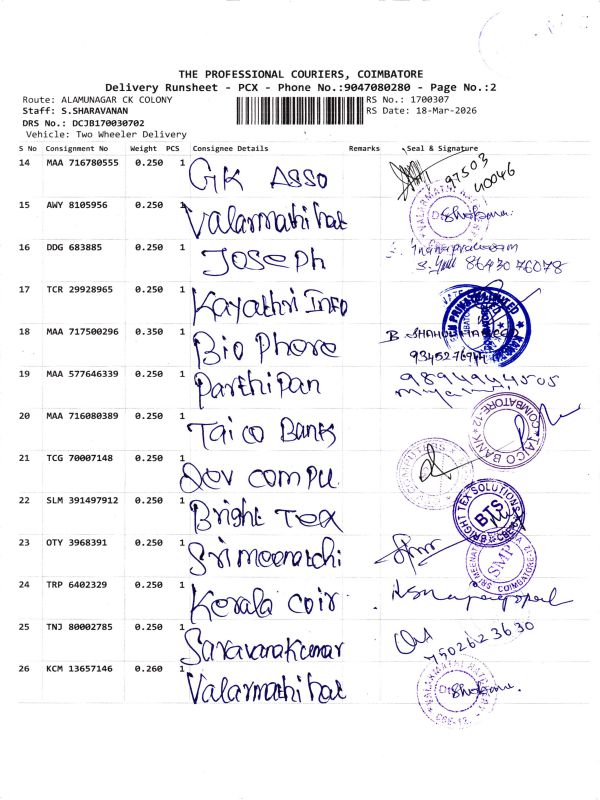 THE PROFESSIONAL COURIERS, COIMBATORE
Delivery Runsheet - PCX - Phone No.:9047080280 - Page No.:2
Route: ALAMUNAGAR CK COLONY RS No.: 1700307
Staff: S.SHARAVANAN RS Date: 18-Mar-2026
DRS No.: DCJB170030702
Vehicle: Two Wheeler Delivery
S No Consignment No Weight PCS Consignee Details Remarks Seal & Signature
14 MAA 716780555 0.250 1 GK ASSO 97503 40046
15 AWY 8105956 0.250 1 Valarmathi hat
16 DDG 683885 0.250 1 Joseph 86430 76078
17 TCR 29928965 0.250 1 Kayathri INFO
18 MAA 717500296 0.350 1 Bio Phore 9345276944
19 MAA 577646339 0.250 1 Parthipan 9894944505
20 MAA 716080389 0.250 1 Taico Bank TAICO BANK COIMBATORE-12
21 TCG 70007148 0.250 1 Dev compu
22 SLM 391497912 0.250 1 Bright Tex BRIGHT TEX SOLUTIONS BTS
23 OTY 3968391 0.250 1 Sri meenatchi SMP COIMBATORE
24 TRP 6402329 0.250 1 Kerala coir
25 TNJ 80002785 0.250 1 Saravanakumar 7502623630
26 KCM 13657146 0.260 1 Valarmathi hat